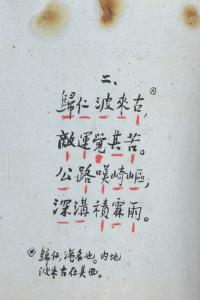 二、
歸仁波來古,
敵運覓其苦。
公路嘆崎嶇,
深溝積霖雨。
歸仁,港名也。內地
波來古在其西。